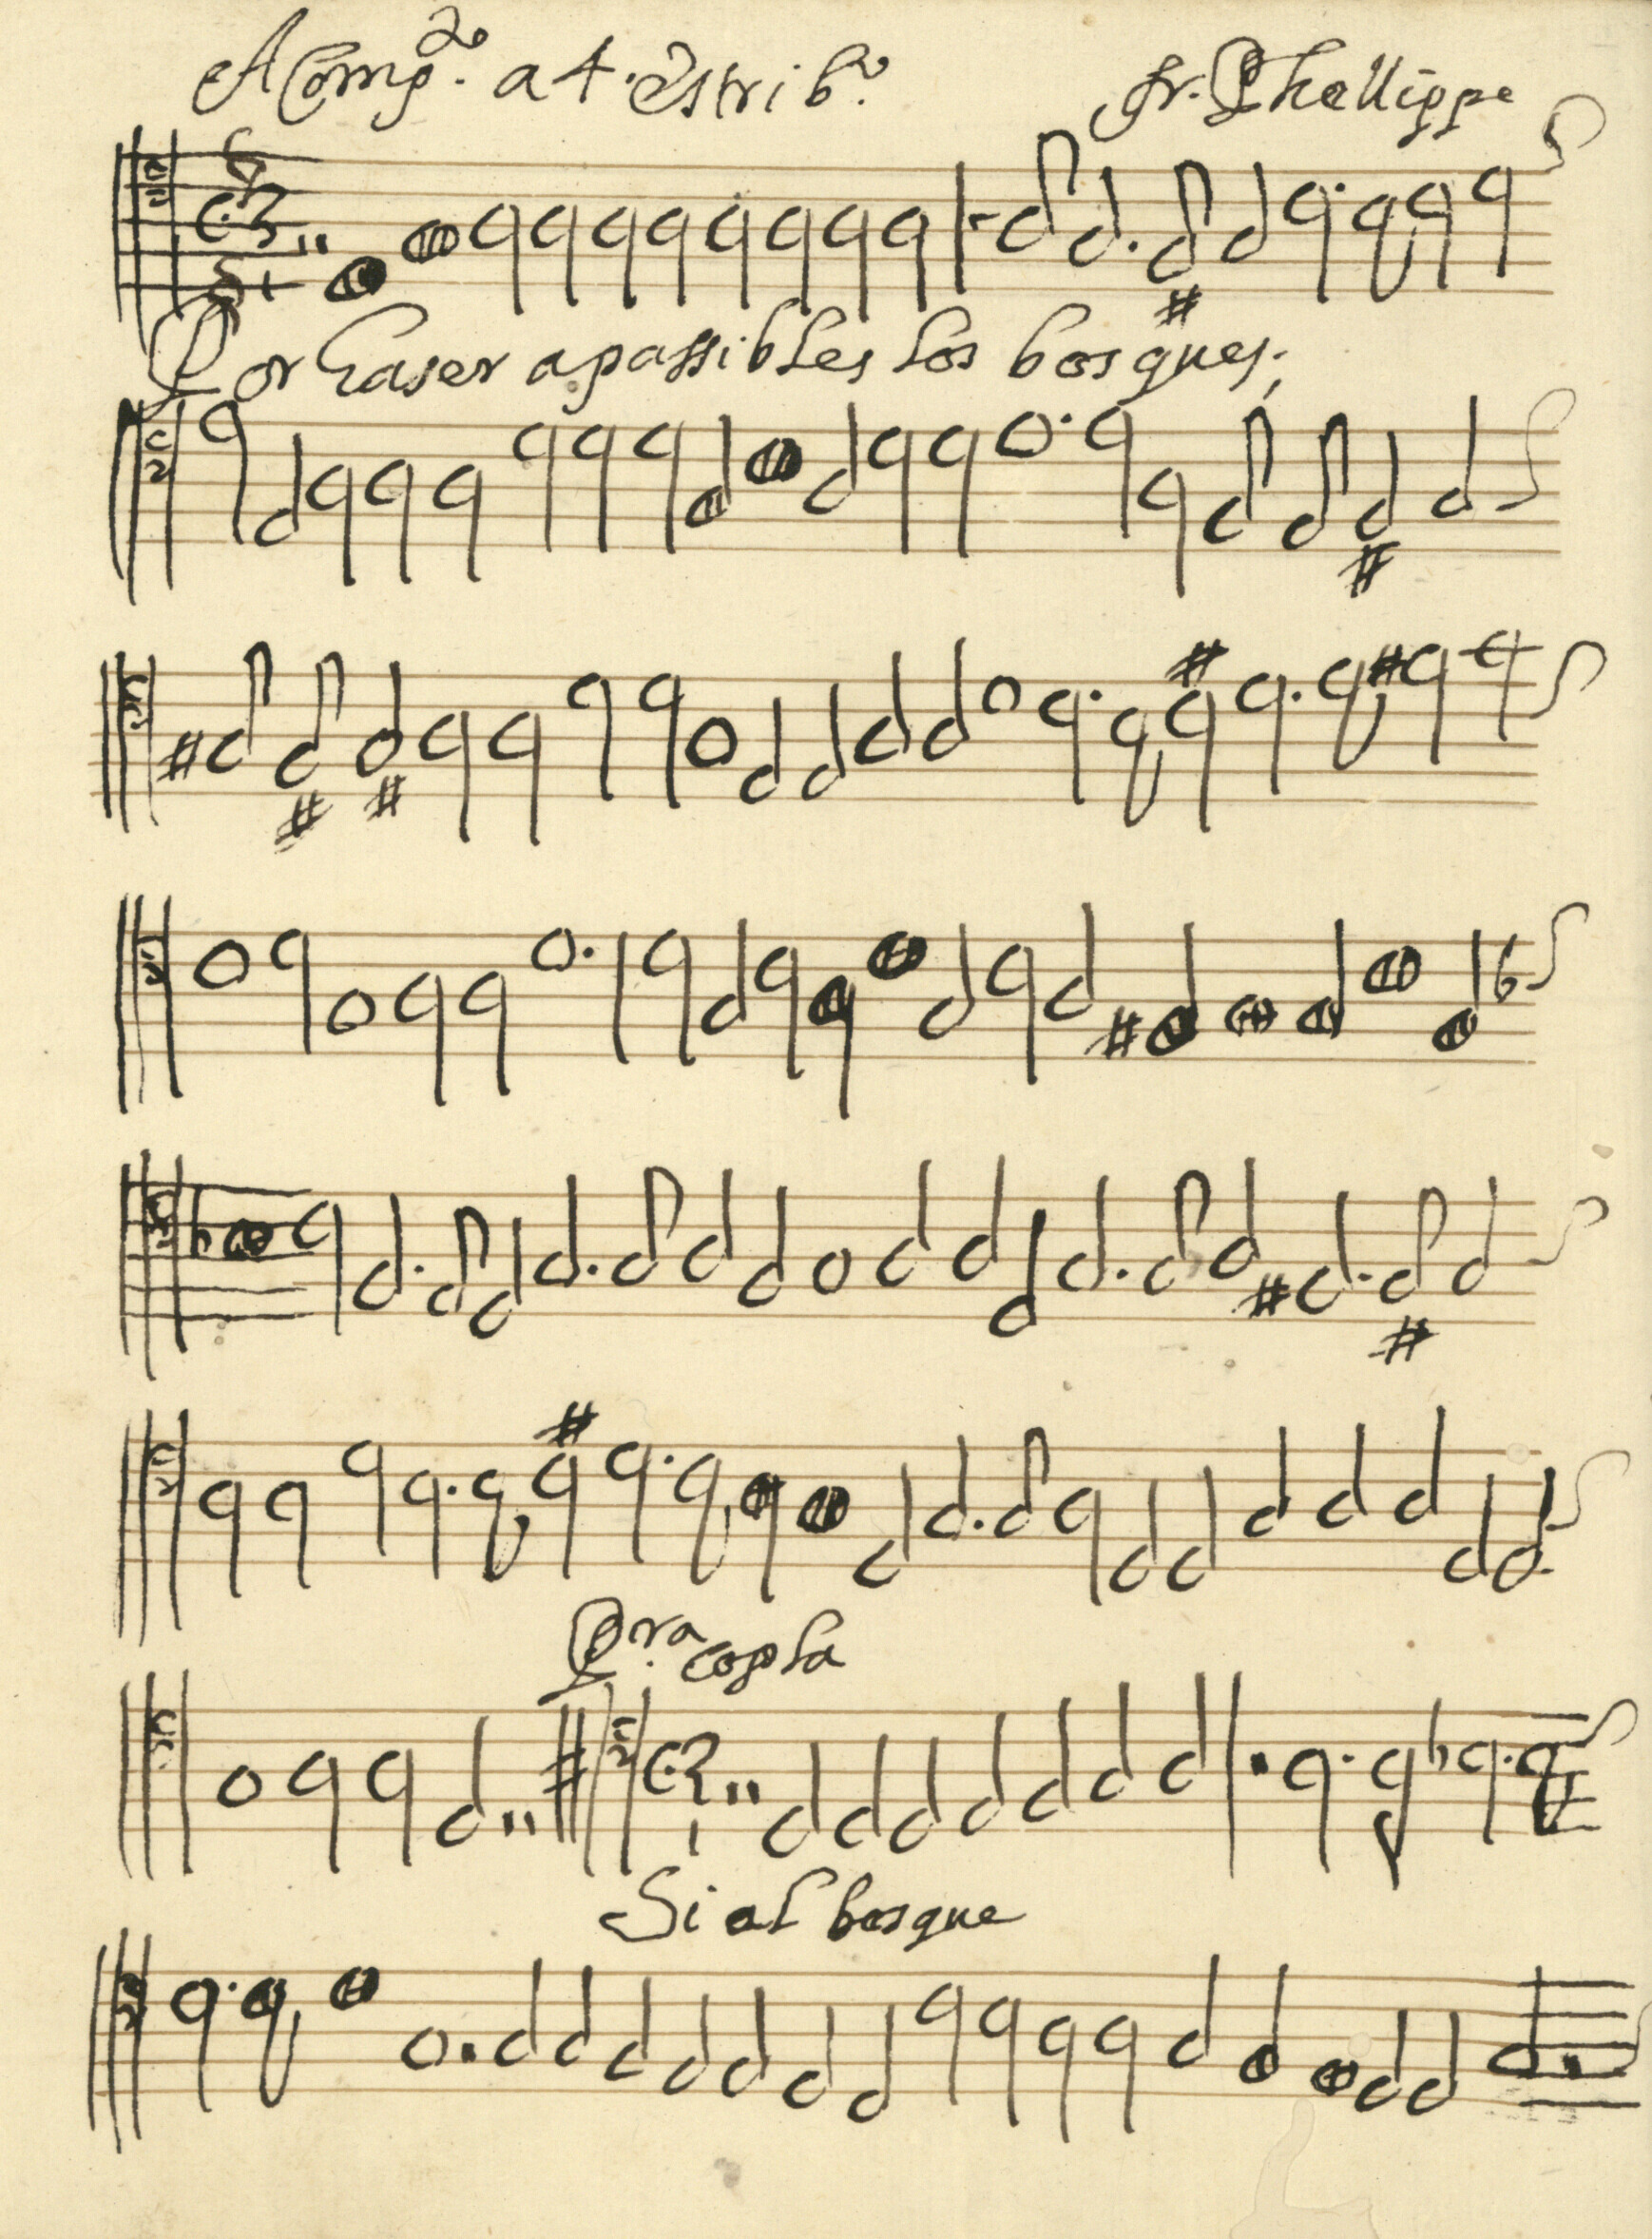 Acomp.to a 4. estrib.o fr. Phellippe
Por haser apassibles los bosques;
Pra. copla
Si al bosque